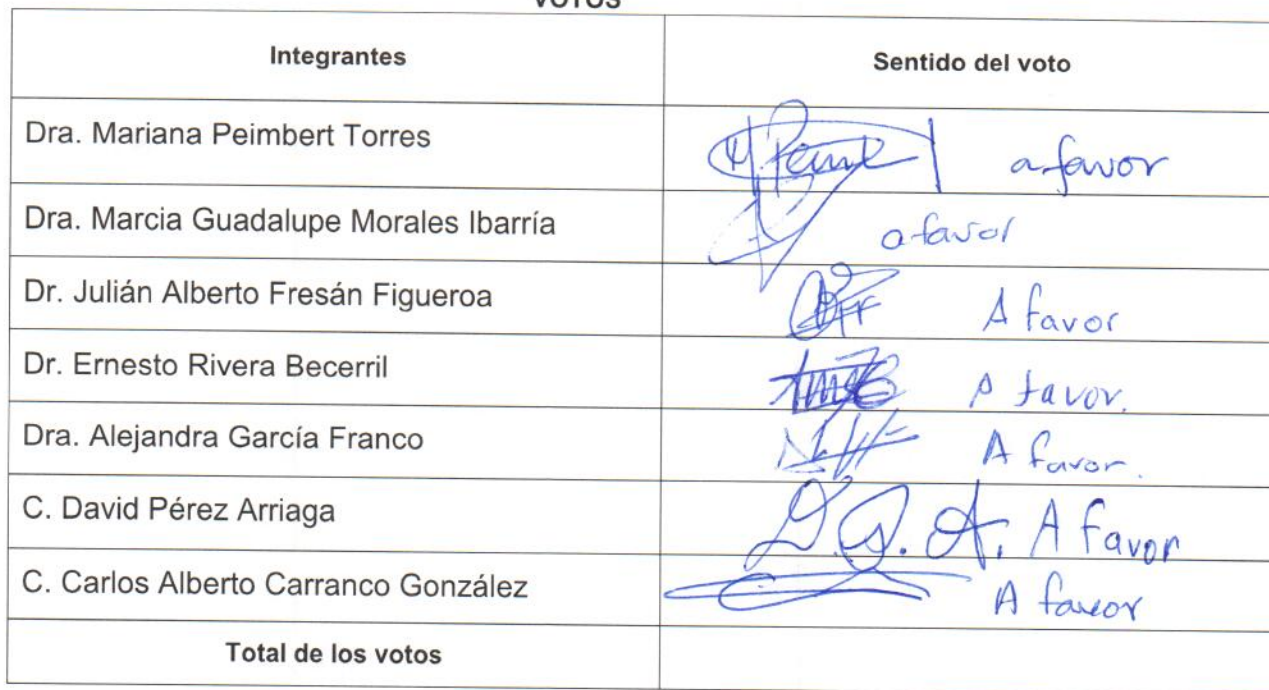 VOTOS
Integrantes Sentido del voto
Dra. Mariana Peimbert Torres a favor
Dra. Marcia Guadalupe Morales Ibarría a favor
Dr. Julián Alberto Fresán Figueroa A favor
Dr. Ernesto Rivera Becerril A favor.
Dra. Alejandra García Franco A favor.
C. David Pérez Arriaga D.P.A. A Favor
C. Carlos Alberto Carranco González A favor
Total de los votos